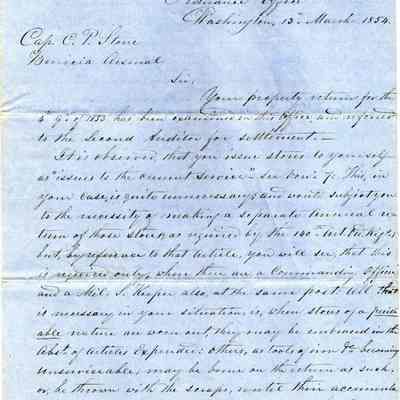 Ordnance Office
Washington, 13th March 1854.
Cap. C. P. Stone
Benicia Arsenal
Sir,
Your property return for the
4th Qr of 1853 has been examined in this Office and referred
to the Second Auditor for settlement.—
It is observed that you issue stores to yourself
as "issues to the current service"— see Vou. 7: This, in
your case, is quite unnecessary; and would subject you
to the necessity of making a separate annual re-
turn of those stores as required by the 140th Art.
but, by reference to that Article, you will see, that this
is required only, where there are a Commanding Officer
and a Mil. S. Keeper also, at the same post. All that
is necessary in your situation, is, when stores of a perish-
able nature are worn out, they may be embraced in the
Abst. of Articles Expended: others, as tools of iron &c becoming
unserviceable, may be borne on the return as such,
or, be thrown with the scraps, until their accumula-